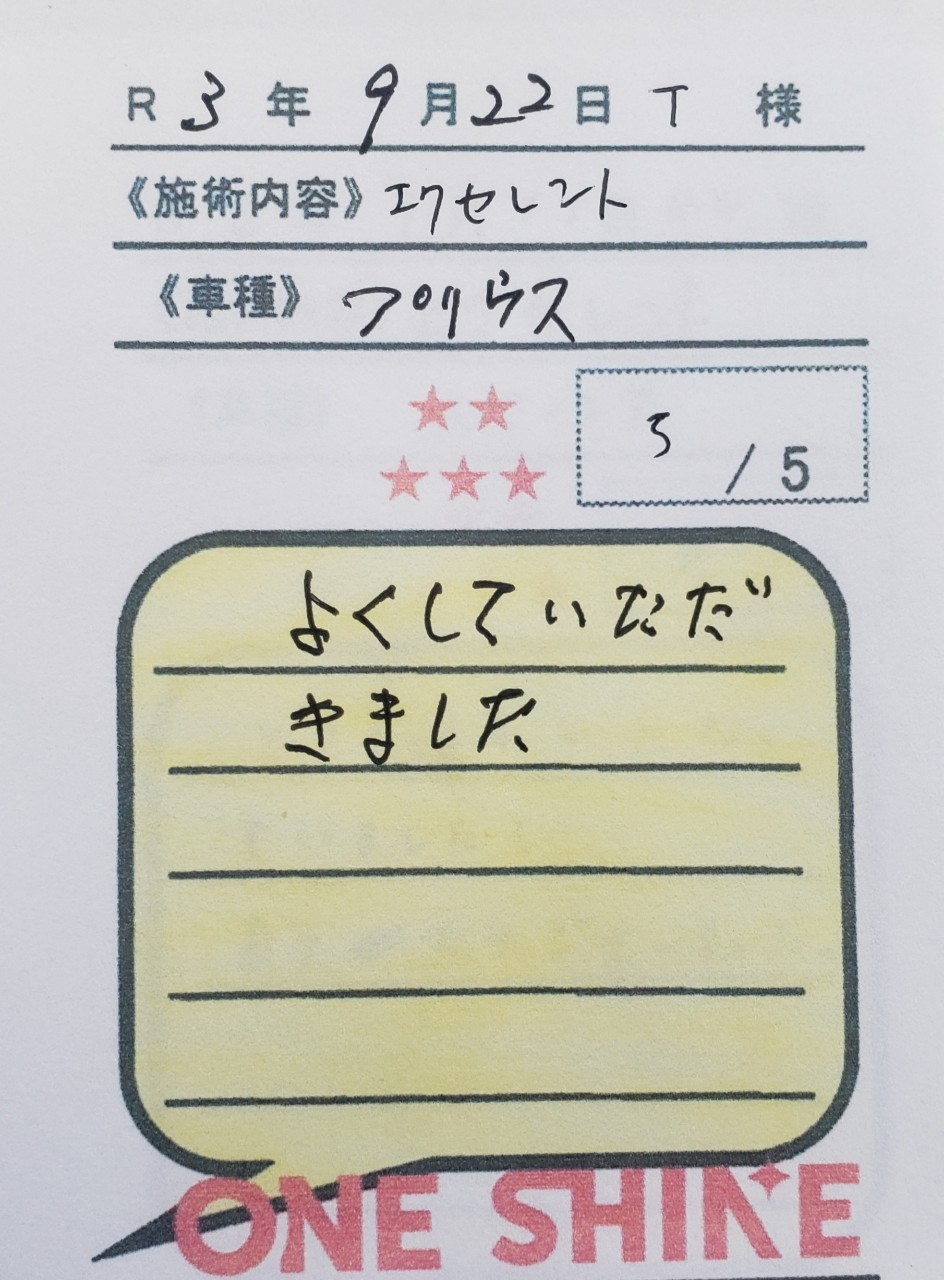 R 3 年 9 月 22 日 T 様
《施術内容》エクセレント
《車種》プリウス
/ 5
よくしていただ
きました
ONE SHINE